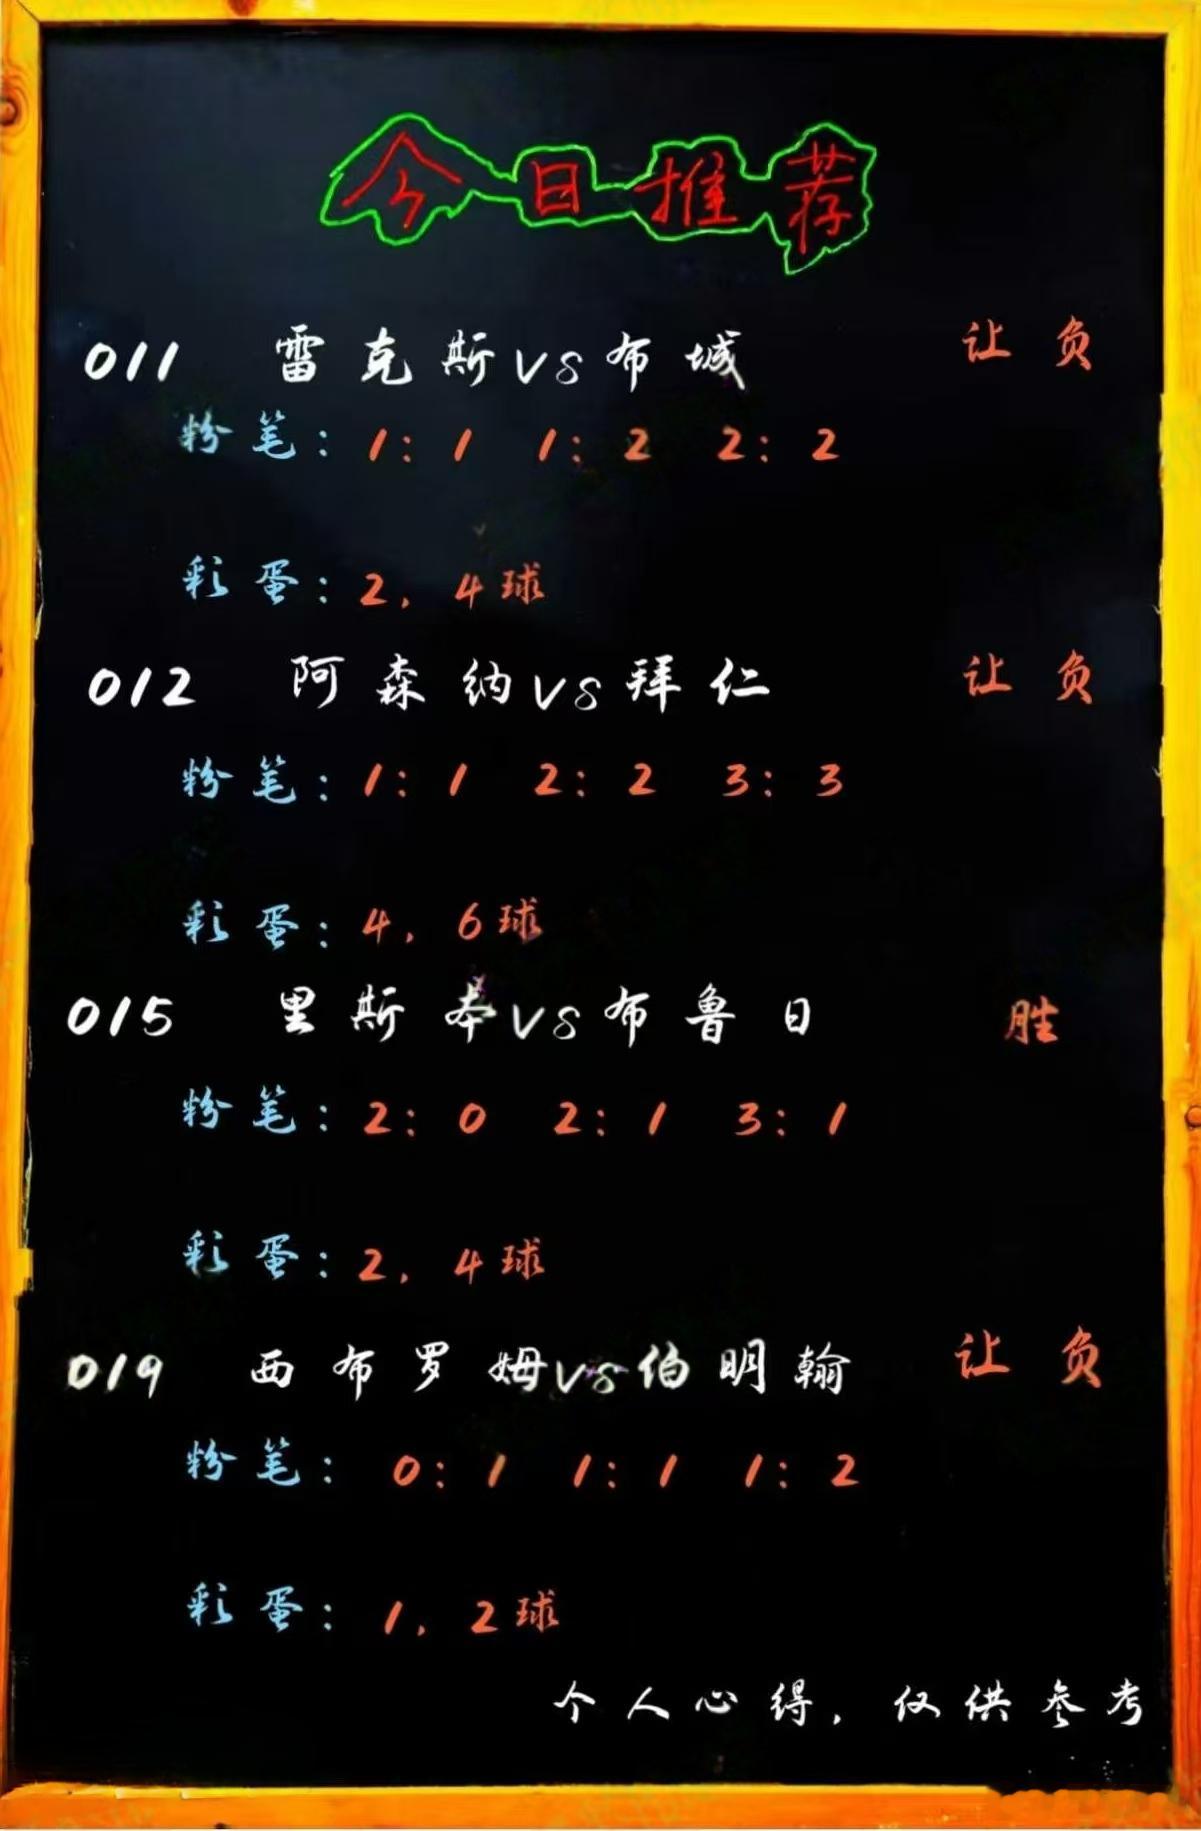 今日推荐
011 雷克斯VS布城 让负
粉笔：1：1 1：2 2：2
彩蛋：2，4球
012 阿森纳VS拜仁 让负
粉笔：1：1 2：2 3：3
彩蛋：4，6球
015 里斯本VS布鲁日 胜
粉笔：2：0 2：1 3：1
彩蛋：2，4球
019 西布罗姆VS伯明翰 让负
粉笔：0：1 1：1 1：2
彩蛋：1，2球
个人心得，仅供参考